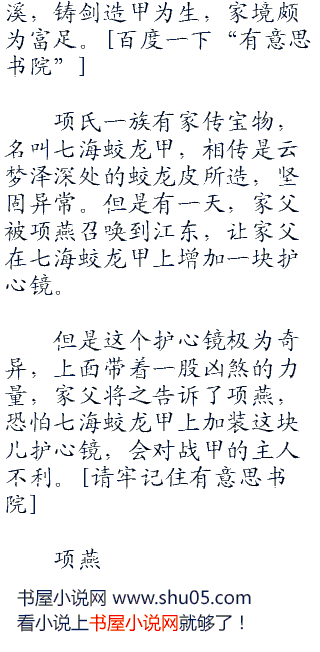 溪，铸剑造甲为生，家境颇
为富足。[百度一下“有意思
书院”]
项氏一族有家传宝物，
名叫七海蛟龙甲，相传是云
梦泽深处的蛟龙皮所造，坚
固异常。但是有一天，家父
被项燕召唤到江东，让家父
在七海蛟龙甲上增加一块护
心镜。
但是这个护心镜极为奇
异，上面带着一股凶煞的力
量，家父将之告诉了项燕，
恐怕七海蛟龙甲上加装这块
儿护心镜，会对战甲的主人
不利。[请牢记住有意思书
院]
项燕
书屋小说网 www.shu05.com
看小说上书屋小说网就够了！